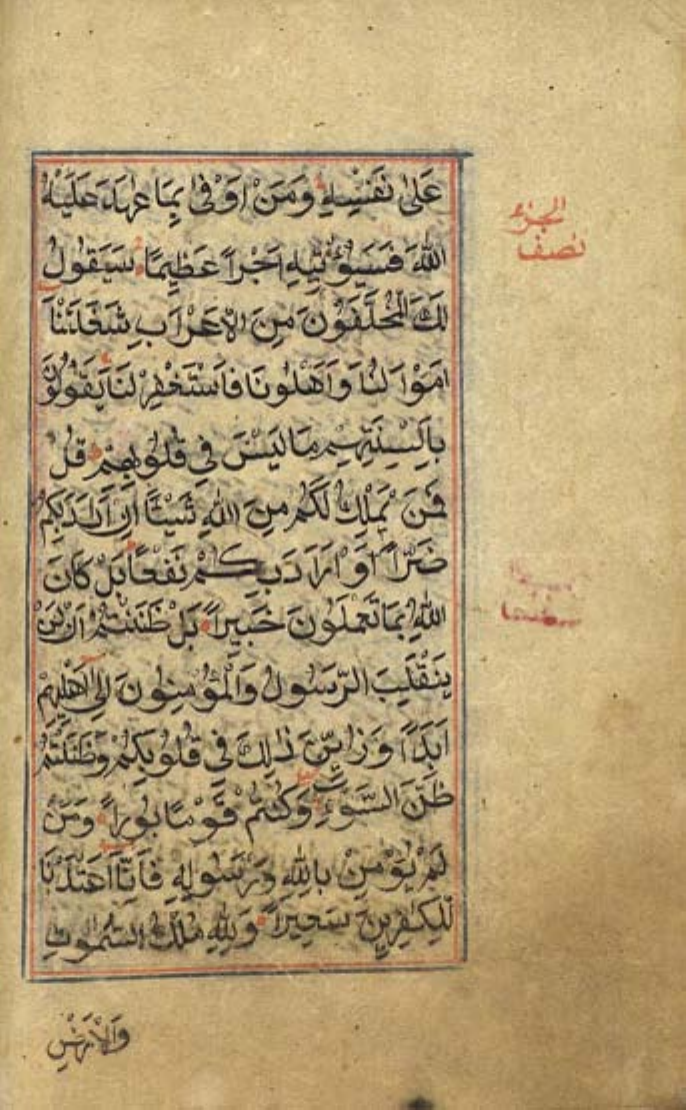 عَلٰى نَفْسِهٖ وَمَنْ اَوْفٰى بِمَا عٰهَدَ عَلَيْهُ
اللّٰهَ فَسَيُؤْتِيْهِ اَجْرًا عَظِيْمًا سَيَقُوْلُ
لَكَ الْمُخَلَّفُوْنَ مِنَ الْاَعْرَابِ شَغَلَتْنَا
اَمْوَالُنَا وَاَهْلُوْنَا فَاسْتَغْفِرْ لَنَا يَقُوْلُوْنَ
بِاَلْسِنَتِهِمْ مَا لَيْسَ فِيْ قُلُوْبِهِمْ قُلْ
فَمَنْ يَمْلِكُ لَكُمْ مِنَ اللّٰهِ شَيْئًا اِنْ اَرَادَ بِكُمْ
ضَرًّا اَوْ اَرَادَ بِكُمْ نَفْعًا بَلْ كَانَ
اللّٰهُ بِمَا تَعْمَلُوْنَ خَبِيْرًا بَلْ ظَنَنْتُمْ اَنْ لَنْ
يَنْقَلِبَ الرَّسُوْلُ وَالْمُؤْمِنُوْنَ اِلٰى اَهْلِيْهِمْ
اَبَدًا وَزُيِّنَ ذٰلِكَ فِيْ قُلُوْبِكُمْ وَظَنَنْتُمْ
ظَنَّ السَّوْءِ وَكُنْتُمْ قَوْمًا بُوْرًا وَمَنْ
لَمْ يُؤْمِنْ بِاللّٰهِ وَرَسُوْلِهٖ فَاِنَّا اَعْتَدْنَا
لِلْكٰفِرِيْنَ سَعِيْرًا وَلِلّٰهِ مُلْكُ السَّمٰوٰتِ
وَالْاَرْضِ
الجزء
نصف